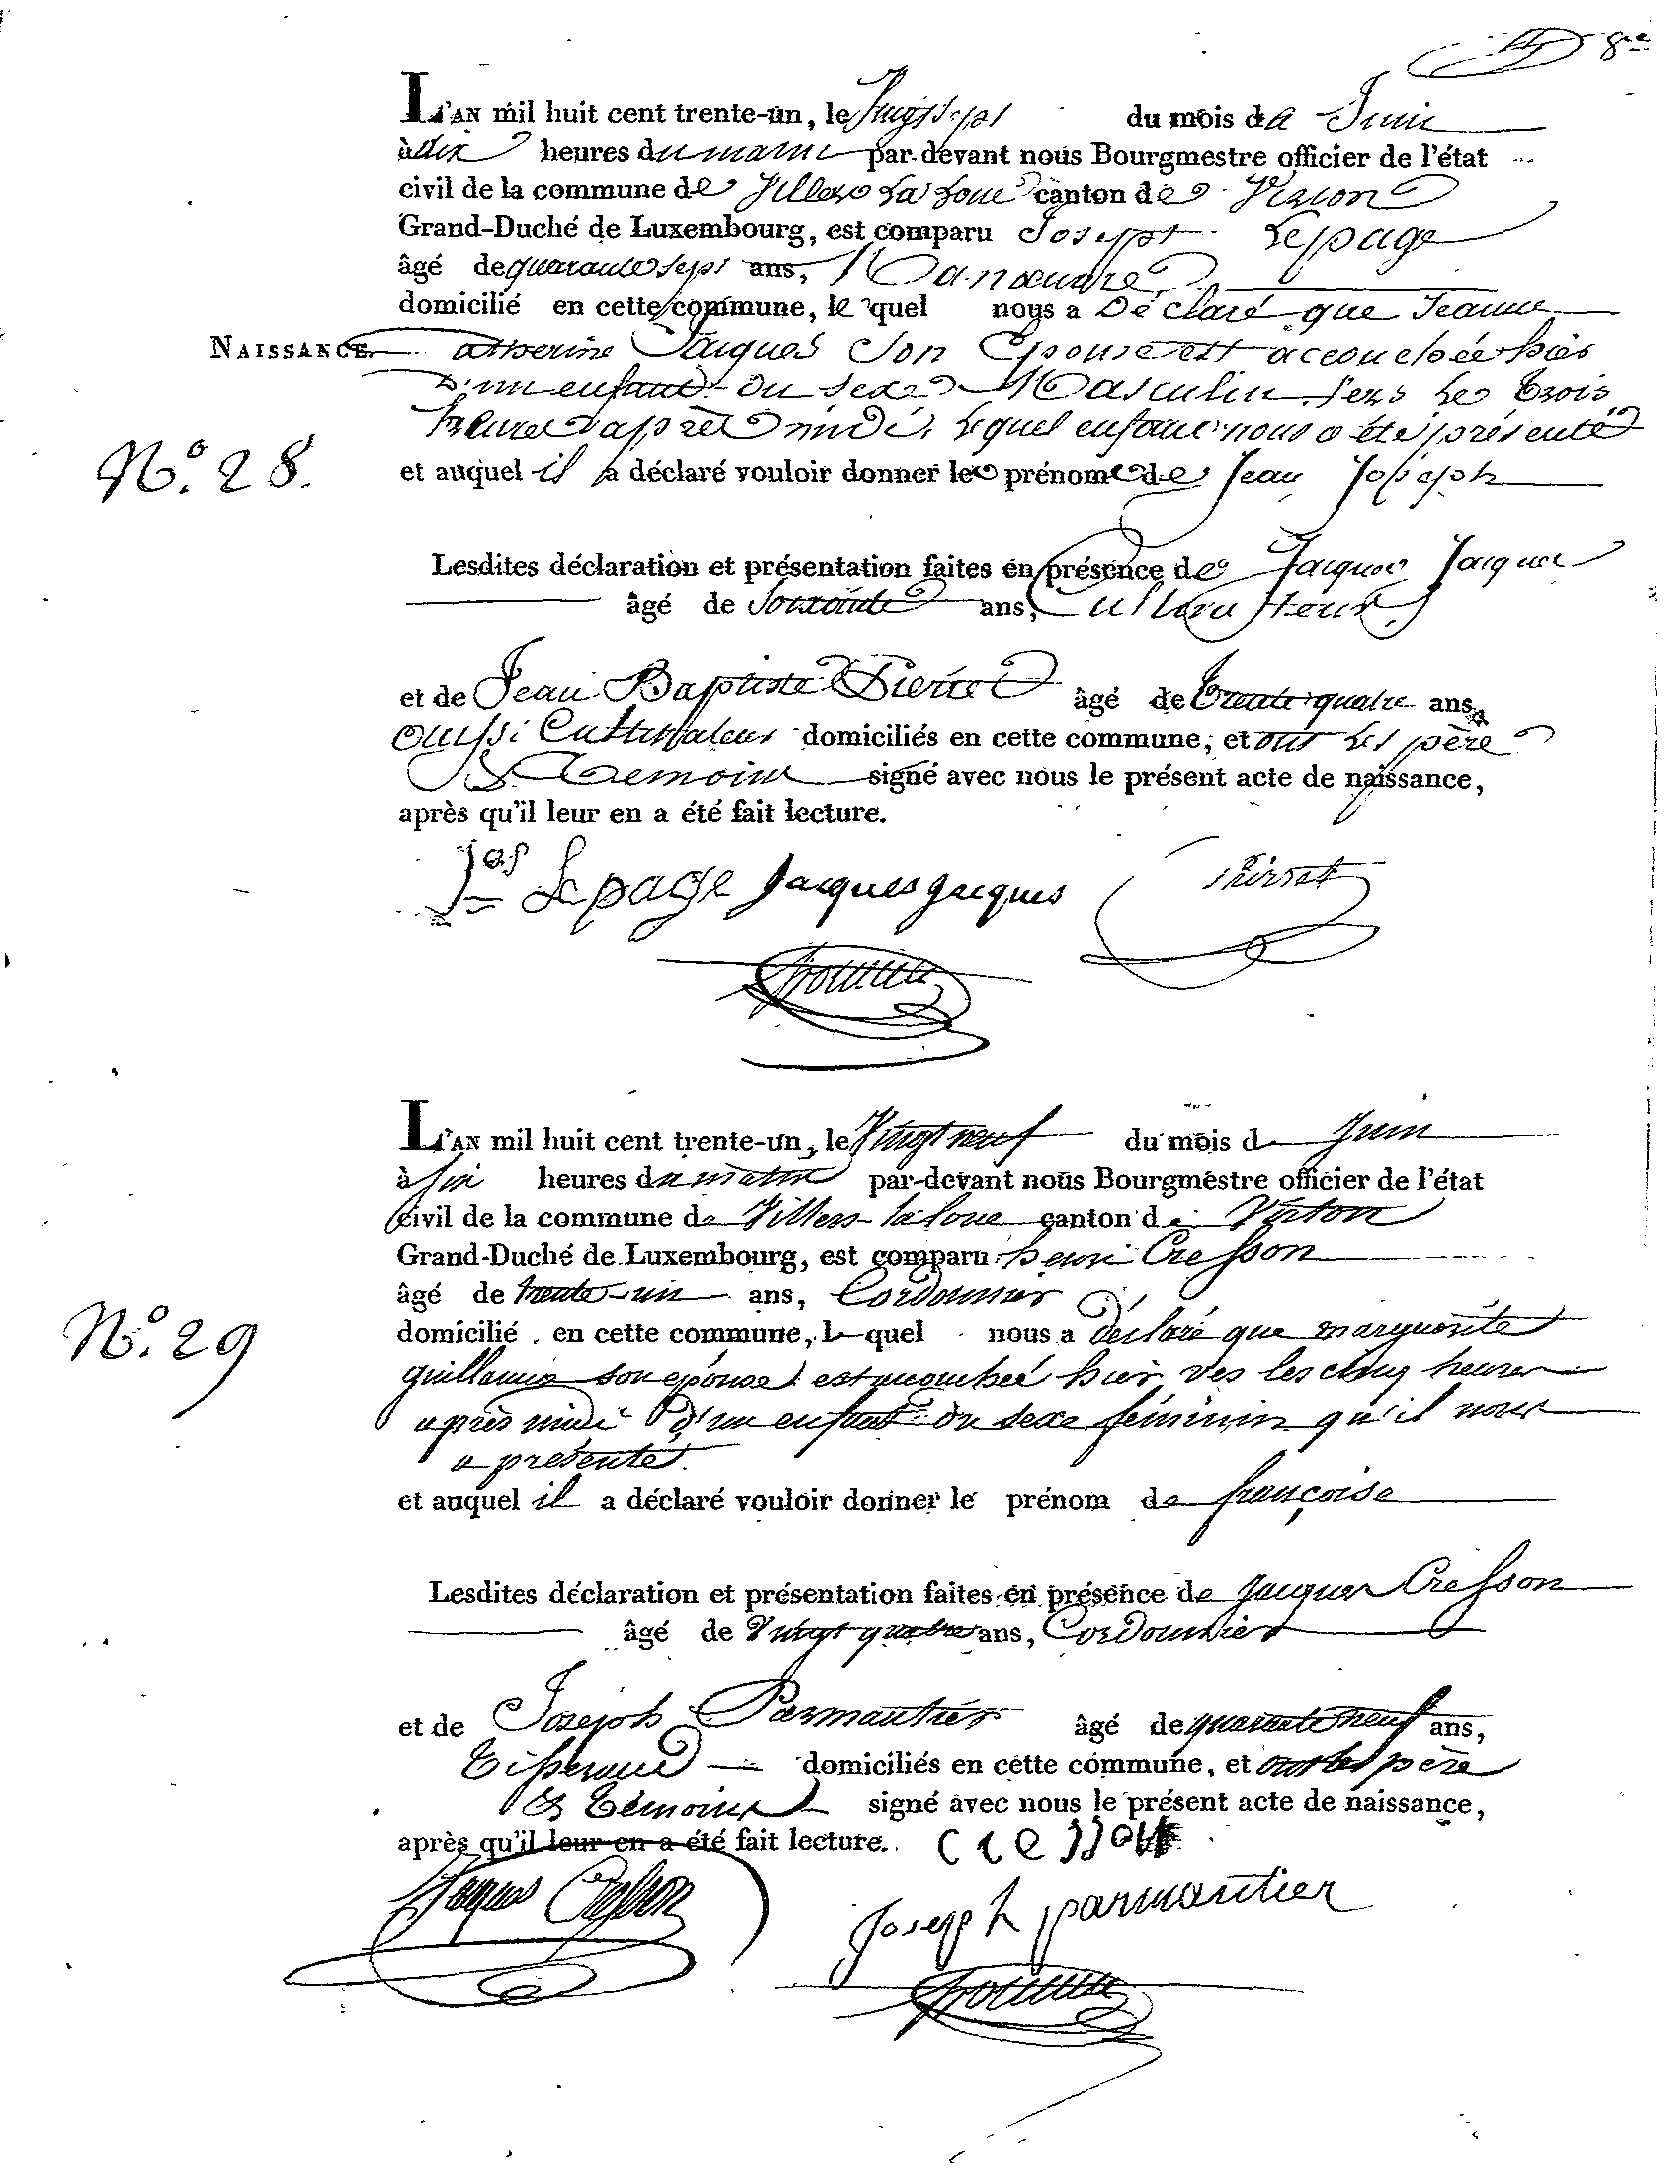 L'AN mil huit cent trente-un, le Vingt Sept du mois de Juin
à dix heures du matin par-devant nous Bourgmestre officier de l'état
civil de la commune de Villers La Loue canton de Virton
Grand-Duché de Luxembourg, est comparu Joseph Lepage
âgé de quarante Sept ans, Manœuvre
domicilié en cette commune, le quel nous a Déclaré que Jeanne
NAISSANCE. Catherine Jacques Son Epouse est accouchée hier
D'un enfant du sexe Masculin vers Les trois
heures après midi, Lequel enfant nous a été présenté
N.° 28. et auquel il a déclaré vouloir donner les prénoms de Jean Joseph
Lesdites déclaration et présentation faites en présence de Jacques Jacques
âgé de Soixante ans, Cultivateur,
et de Jean Baptiste Pierret âgé de trente quatre ans,
aussi Cultivateur domiciliés en cette commune, et ont Les père
Et Temoins signé avec nous le présent acte de naissance,
après qu'il leur en a été fait lecture.
Jos Lepage Jacques Jacques
L'AN mil huit cent trente-un, le Vingt neuf du mois de Juin
à six heures du matin par-devant nous Bourgmestre officier de l'état
civil de la commune de Villers-la loue canton de Virton
Grand-Duché de Luxembourg, est comparu henri Cresson
âgé de trente-un ans, Cordonnier
N.° 29 domicilié en cette commune, le quel nous a déclaré que marguerite
guillaume son épouse est accouchée hier vers les cinq heures
après midi d'un enfant du sexe féminin qu'il nous
a présenté.
et auquel il a déclaré vouloir donner le prénom de françoise
Lesdites déclaration et présentation faites en présence de Jacques Cresson
âgé de Vingt quatre ans, Cordonnier
et de Joseph Parmantier âgé de quarante neuf ans,
Tisserand domiciliés en cette commune, et ont les père
Et Témoins signé avec nous le présent acte de naissance,
après qu'il leur en a été fait lecture. cresson
Jaques Cresson Joseph parmantier